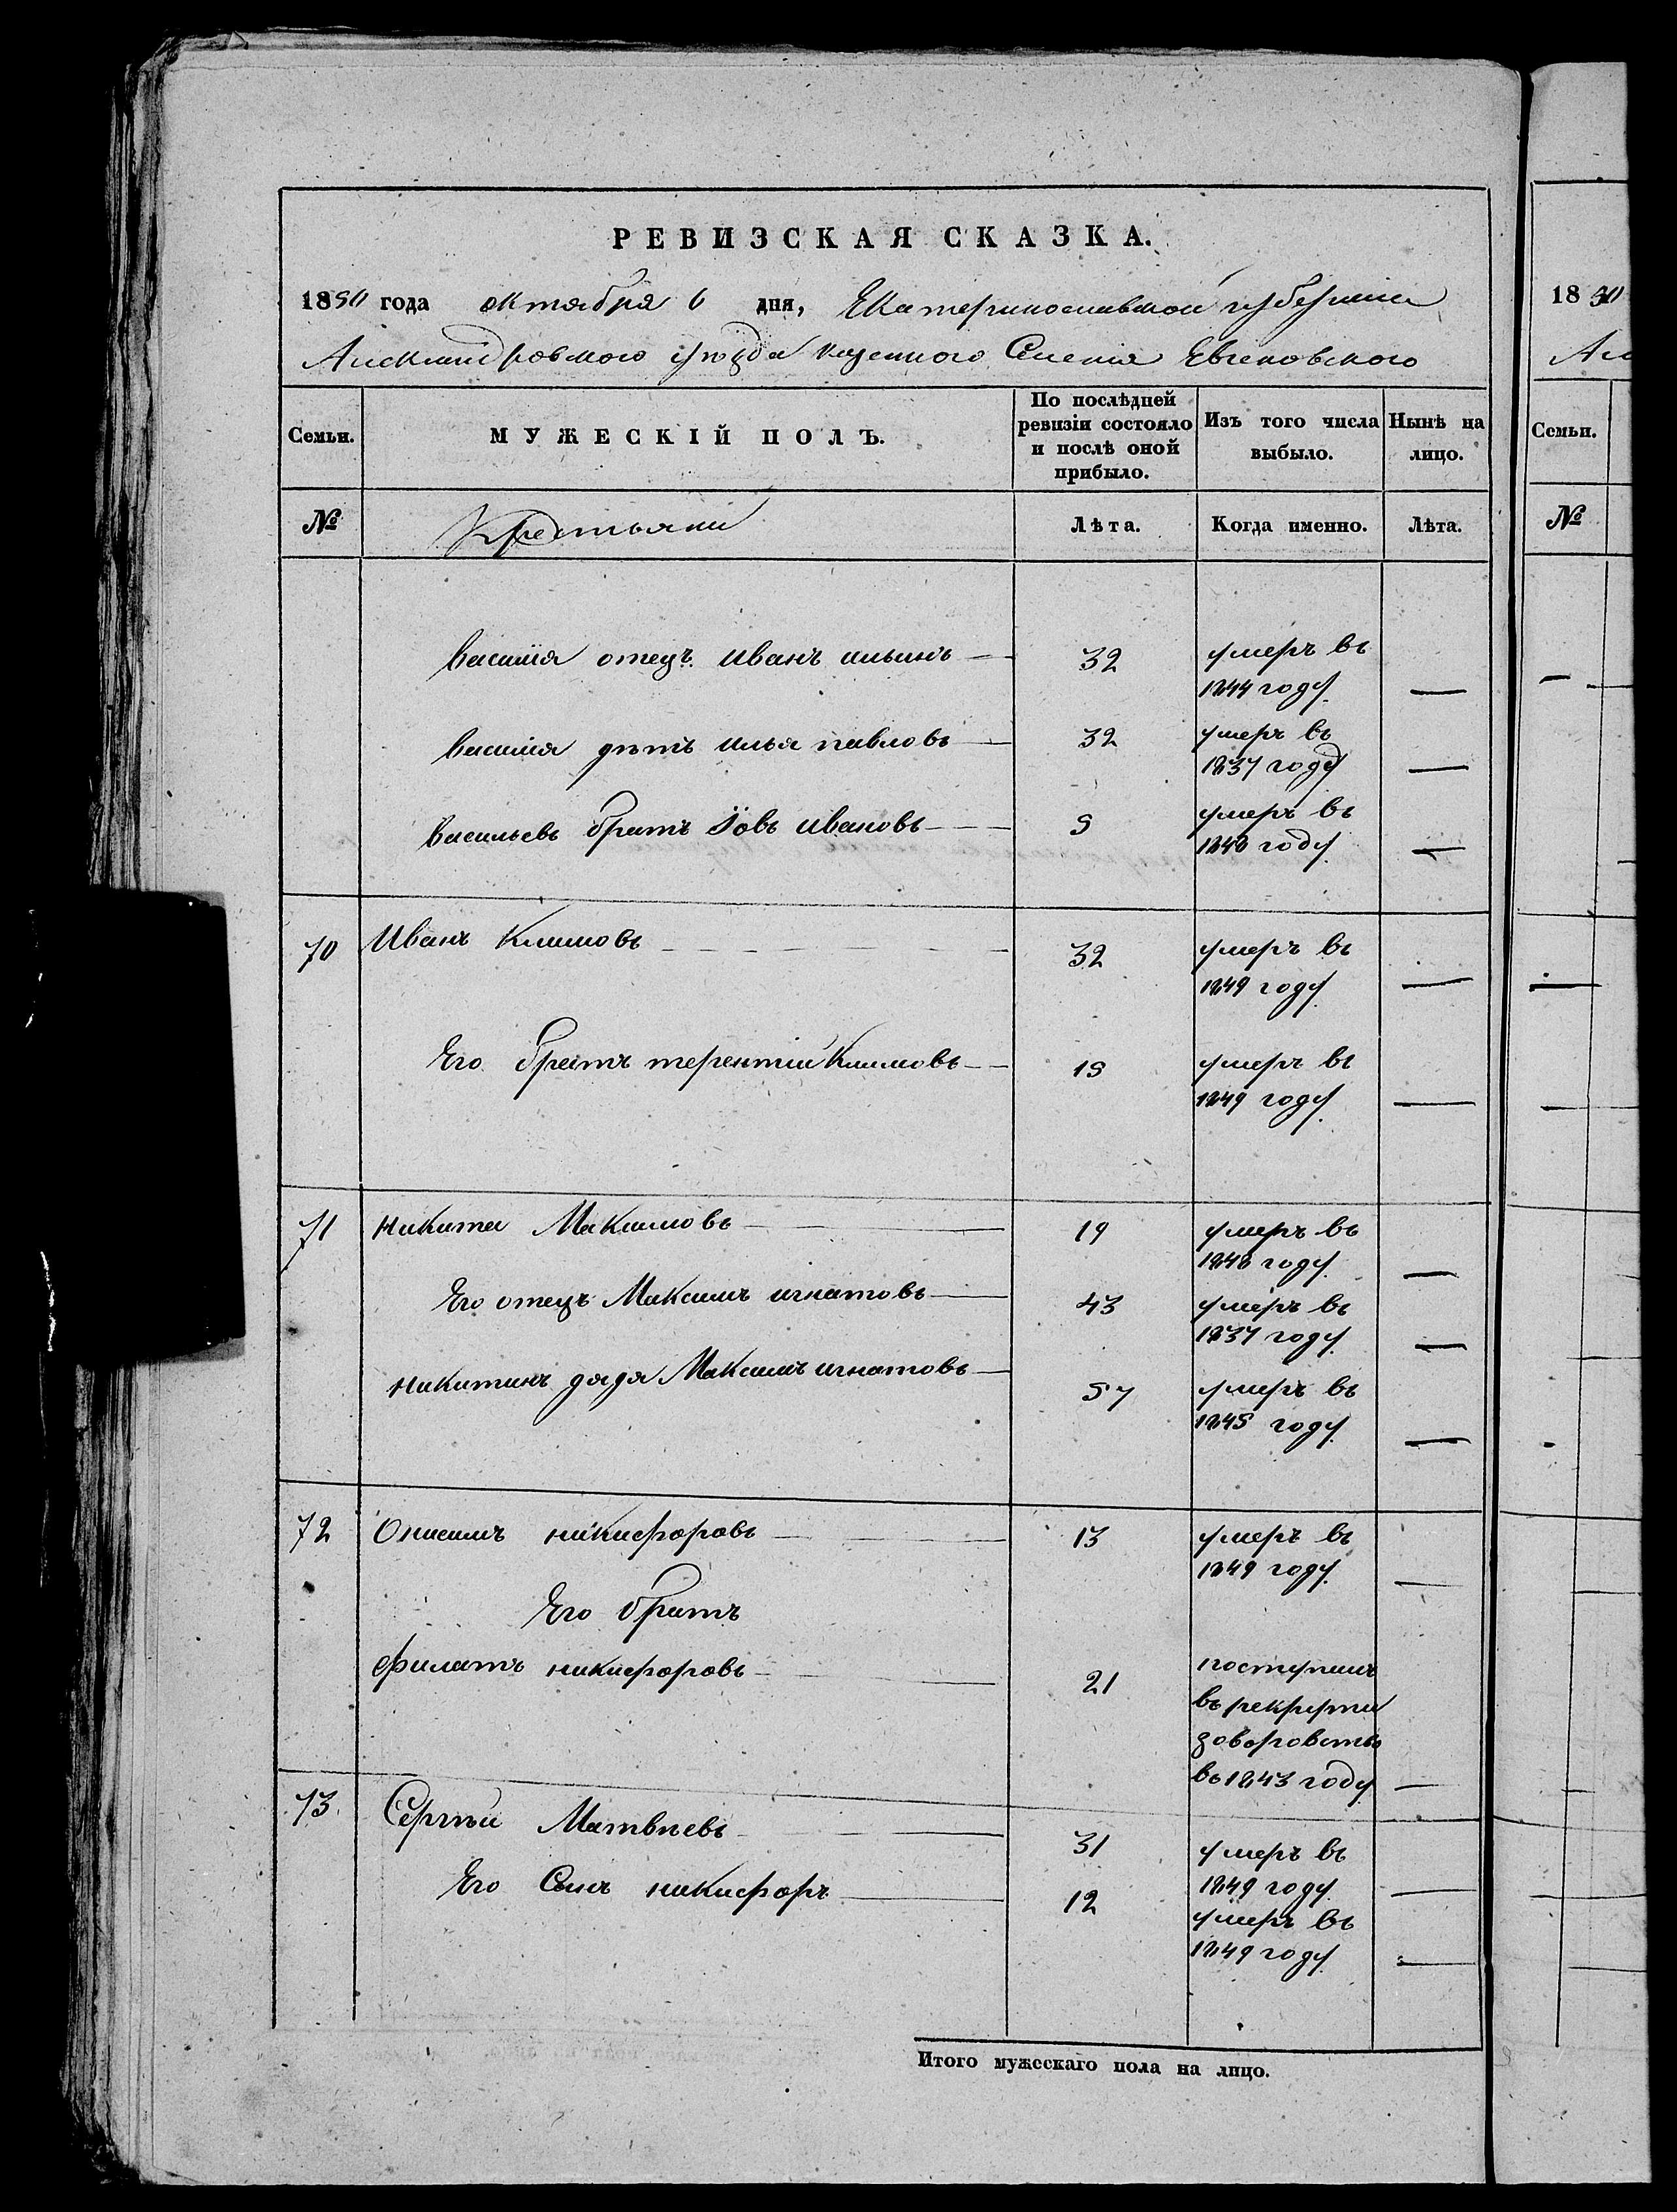 РЕВИЗСКАЯ СКАЗКА.
1850 года октября 6 дня, Екатеринославской губернии
Александровского уезда казенного Селения Евгеновского
Семьи. МУЖЕСКІЙ ПОЛЪ. По послѣдней ревизіи состояло и послѣ оной прибыло. Изъ того числа выбыло. Нынѣ на лицо.
№ Крестьяни Лѣта. Когда именно. Лѣта.
василия отецъ иванъ ильинъ — 32 умеръ въ
1844 году. —
василия дѣтъ илья павловъ — 32 умеръ въ
1837 году —
васильевъ братъ Іовъ ивановъ — 5 умеръ въ
1840 году. —
70 Иванъ Климовъ — 32 умеръ въ
1849 году. —
Его братъ терентий Климовъ — 15 умеръ въ
1849 году. —
71 никита Максимовъ — 19 умеръ въ
1848 году. —
Его отецъ Максимъ игнатовъ — 43 умеръ въ
1837 году. —
никитинъ дядя Максимъ игнатовъ — 57 умеръ въ
1845 году. —
72 Онисимъ никифоровъ — 13 умеръ въ
1849 году. —
Его братъ
филатъ никифоровъ — 21 поступилъ
въ рекруты
за воровство
въ 1843 году —
73. Сергѣй Матвѣевъ — 31 умеръ въ
1849 году —
Его Сынъ никифоръ — 12 умеръ въ
1849 году. —
Итого мужескаго пола на лицо.
1850
Ал
Семьи.
№